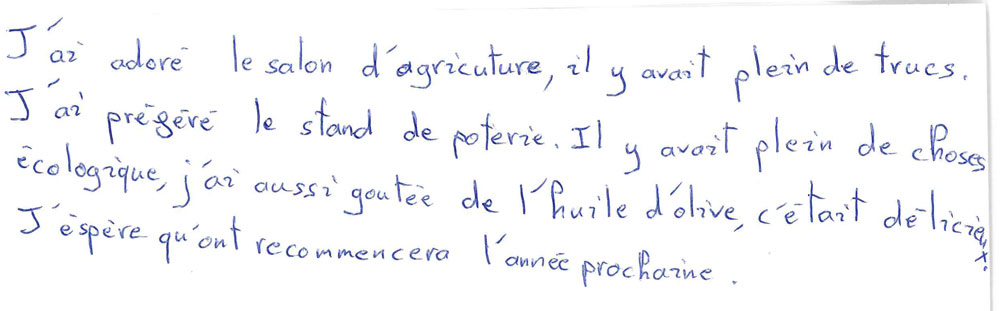 J'ai adoré le salon d'agricuture, il y avait plein de trucs.
J'ai prégéré le stand de poterie. Il y avait plein de choses
écologique, j'ai aussi goutée de l'huile d'olive, c'était délicieux.
J'éspère qu'ont recommencera l'année prochaine.